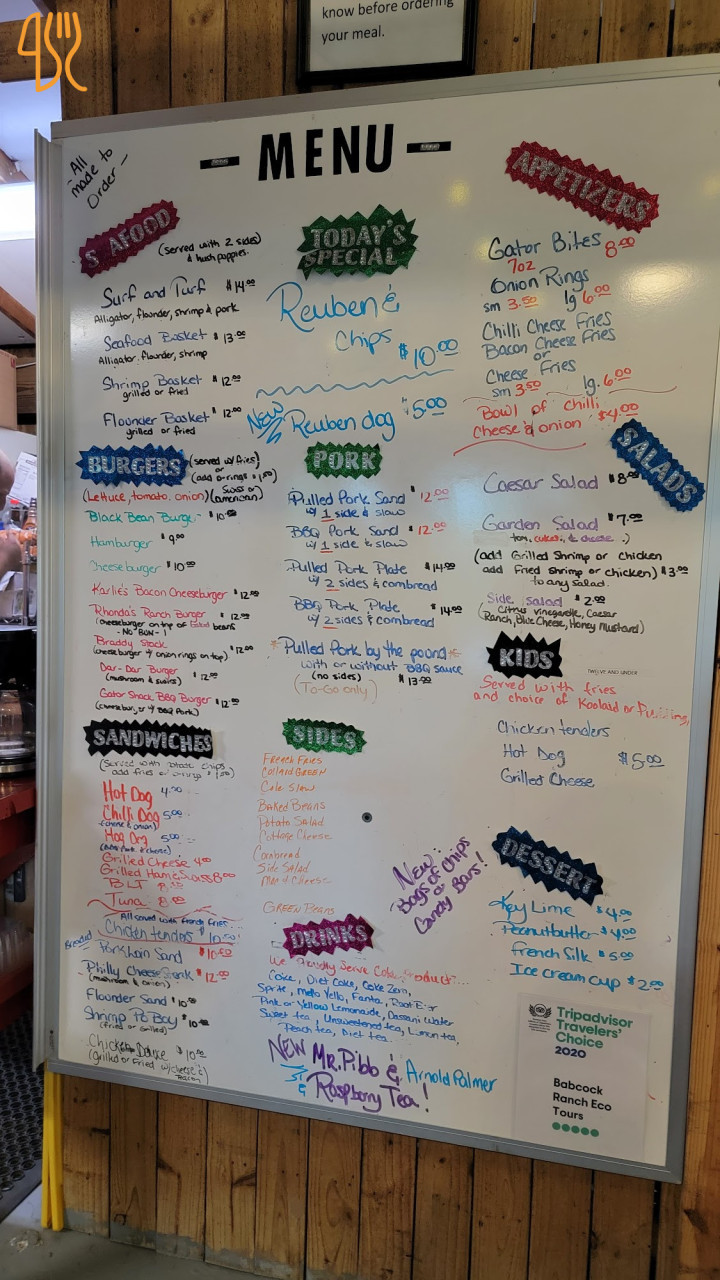 know before ordering
your meal.
All
made to
Order -
- MENU -
SEAFOOD
(served with 2 sides)
& hush puppies.
Surf and Turf $14.00
Alligator, flounder, shrimp & pork
Seafood Basket $13.00
Alligator, flounder, shrimp
Shrimp Basket $12.00
grilled or fried
Flounder Basket $12.00
grilled or fried
TODAY'S
SPECIAL
Reuben &
Chips
$10.00
NEW Reuben dog $5.00
APPETIZERS
Gator Bites 8.00
7oz
Onion Rings
sm 3.50 lg 6.00
Chilli Cheese Fries
Bacon Cheese Fries
or
Cheese Fries
sm 3.50 lg. 6.00
Bowl of chilli $4.00
Cheese & onion
BURGERS
(served w/ fries)
or
(add o-rings $1.50)
(Lettuce, tomato, onion) (Swiss or American)
Black Bean Burger $10.00
Hamburger $9.00
Cheeseburger $10.00
Karlie's Bacon Cheeseburger $12.00
Rhonda's Ranch Burger $12.00
- NO BUN -
Braddy Stack $12.00
(cheeseburger & onion rings on top)
Dar-Dar Burger $12.00
(mushroom & swiss)
Gator Shack BBQ Burger $12.00
(cheeseburger & BBQ Pork)
PORK
Pulled Pork Sand $12.00
w/ 1 side & slaw
BBQ Pork Sand $12.00
w/ 1 side & slaw
Pulled Pork Plate $14.00
w/ 2 sides & cornbread
BBQ Pork Plate $14.00
w/ 2 sides & cornbread
*Pulled Pork by the pound*
with or without BBQ sauce
(no sides) $13.00
(To-Go only)
SALADS
Caesar Salad $8.00
Garden Salad $7.00
(add Grilled Shrimp or chicken
add Fried Shrimp or chicken) $3.00
to any salad.
Side Salad $2.00
(Citrus vinegarette, Caesar
Ranch, Blue Cheese, Honey Mustard)
KIDS
TWELVE AND UNDER
Served with fries
and choice of Koolaid or Pudding
Chicken tenders
Hot Dog $5.00
Grilled Cheese
SANDWICHES
Hot Dog 4.50
Chilli Dog 5.00
(cheese & onion)
Hog Dog 5.00
Grilled Cheese 4.00
Grilled Ham & Swiss 8.00
BLT
Tuna 8.00
All served with french fries
Chicken tenders
Breaded
Porkloin Sand $10.50
Philly Cheese Steak $12.00
(mushroom & onion)
Flounder Sand $10.00
Shrimp Po Boy $10.00
(fried or Grilled)
Chicken Deluxe $10.00
(grilled or Fried w/ cheese &
bacon)
SIDES
French Fries
Collard GREEN
Cole Slaw
Baked Beans
Potato Salad
Cottage Cheese
Cornbread
Side Salad
Mac & Cheese
GREEN Beans
NEW
Bags of Chips
or
Candy Bars!
DRINKS
We Proudly Serve Coke Product...
Coke, Diet Coke, Coke Zero,
Sprite, Mello Yello, Fanta, Root Beer
Pink or Yellow Lemonade, Dasani Water
Sweet tea, Unsweetened tea, Lemon tea,
Peach tea, Diet tea.
NEW Mr. Pibb & Arnold Palmer
& Raspberry Tea!
DESSERT
Key Lime $4.00
Peanutbutter $4.00
French Silk $5.00
Ice cream cup $2.00
Tripadvisor
Travelers'
Choice
2020
Babcock
Ranch Eco
Tours